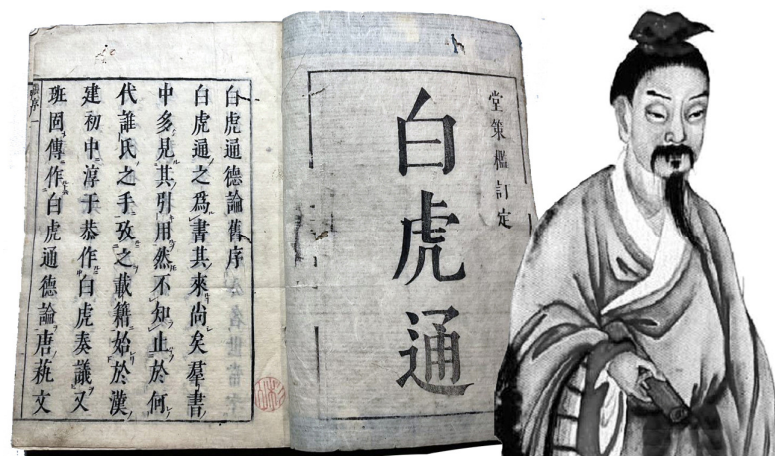 堂策檻訂定
白虎通
白虎通德論舊序
白虎通之爲書其來尚矣羣書
中多見其引用然不知止於何
代誰氏之手攷之載籍始於漢
建初中淳于恭作白虎奏議又
班固傳作白虎通德論唐蓺文